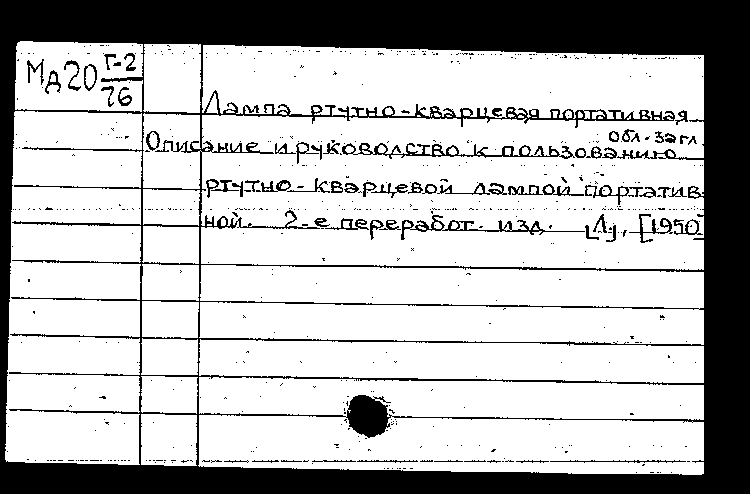 Мд20 Г-2/76
Лампа ртутно-кварцевая портативная
обл. загл.
Описание и руководство к пользованию
ртутно-кварцевой лампой портатив-
ной. 2-е переработ. изд. [Л], [1950]